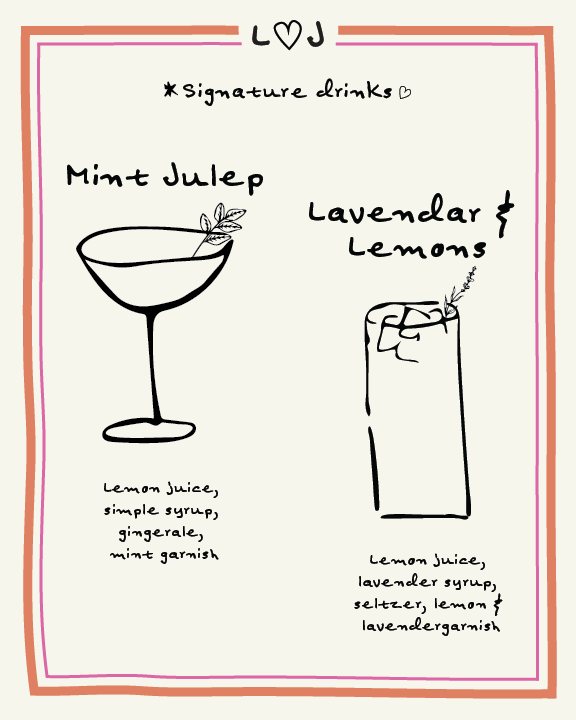 L♡J
*Signature drinks♡
Mint Julep
Lemon juice,
simple syrup,
gingerale,
mint garnish
Lavendar &
Lemons
Lemon juice,
lavender syrup,
seltzer, lemon &
lavendergarnish